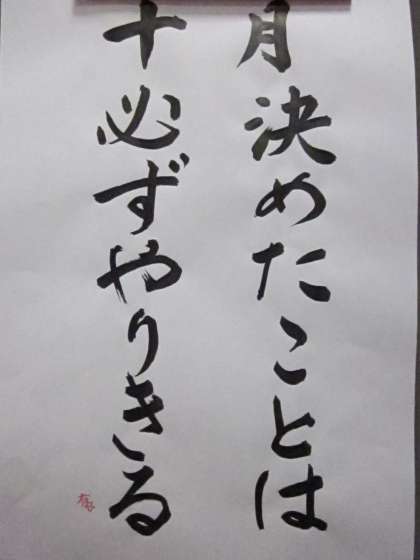 月決めたことは
十必ずやりきる